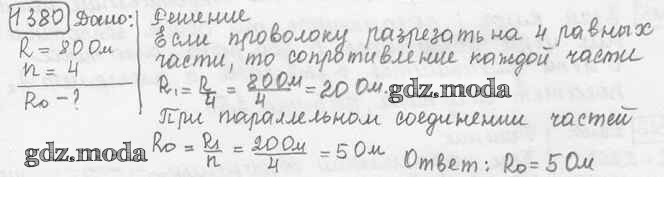 1380 Дано: Решение
R = 80 Ом Если проволоку разрезать на 4 равных
n = 4 части, то сопротивление каждой части
R₀ - ? R₁ = R/4 = 80 Ом/4 = 20 Ом. gdz.moda
При параллельном соединении частей
gdz.moda R₀ = R₁/n = 20 Ом/4 = 5 Ом Ответ: R₀ = 5 Ом